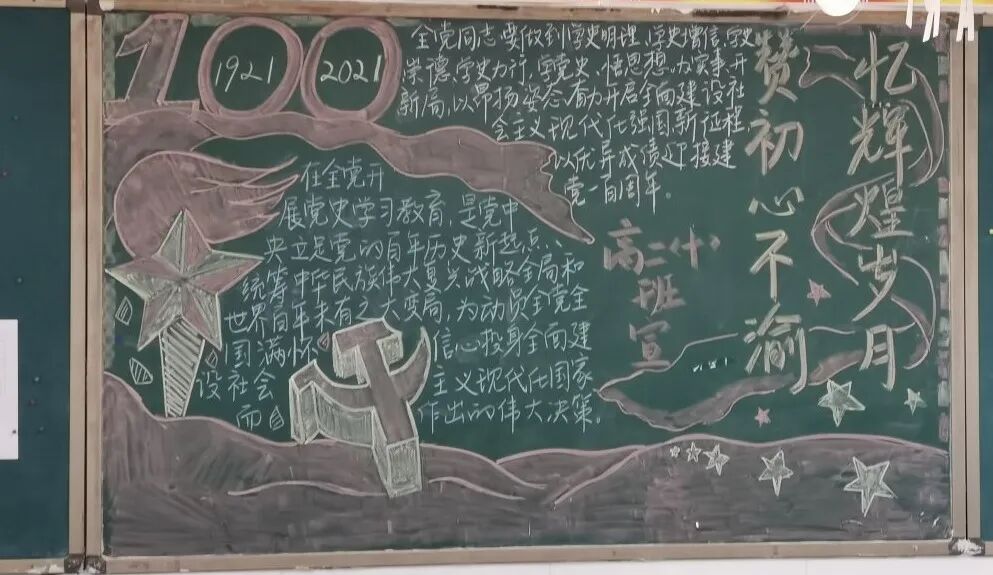 100
1921 2021
全党同志要做到学史明理、学史增信、学史
崇德、学史力行,学党史、悟思想、办实事、开
新局,以昂扬姿态奋力开启全面建设社
会主义现代化强国新征程,
以优异成绩迎接建
党一百周年。
忆辉煌岁月
赞初心不渝
在全党开
展党史学习教育,是党中
央立足党的百年历史新起点、
统筹中华民族伟大复兴战略全局和
世界百年未有之大变局,为动员全党全
国满怀信心投身全面建
设社会主义现代化国家
而作出的伟大决策。
高二(十)
班
宣